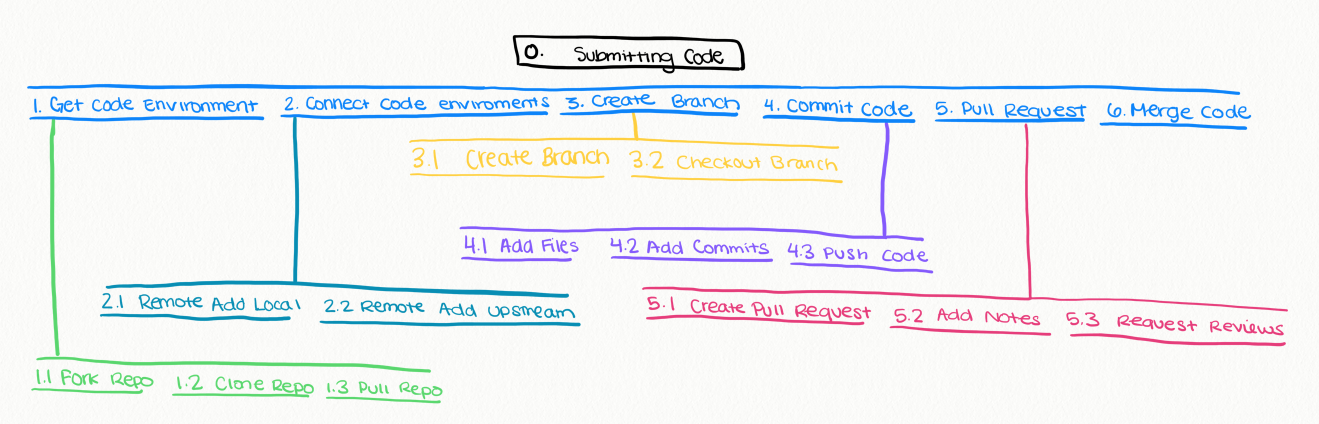 0. Submitting Code
1. Get Code Environment 2. Connect Code enviroments 3. Create Branch 4. Commit Code 5. Pull Request 6. Merge Code
3.1 Create Branch 3.2 Checkout Branch
4.1 Add Files 4.2 Add Commits 4.3 Push Code
2.1 Remote Add Local 2.2 Remote Add Upstream
5.1 Create Pull Request 5.2 Add Notes 5.3 Request Reviews
1.1 Fork Repo 1.2 Clone Repo 1.3 Pull Repo